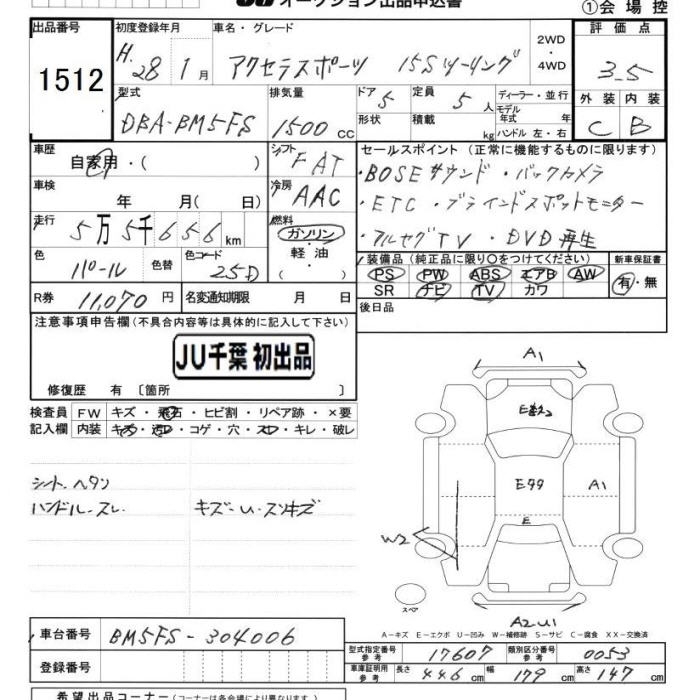 オークション出品申込書
①会場控
出品番号 初度登録年月 車名・グレード 評価点
1512
H.28 1月 アクセラスポーツ 15Sツーリング 2WD・4WD 3.5
型式 排気量 ドア 5 定員 5人 ディーラー・並行 外装 内装
DBA-BM5FS 1500cc 形状 積載 kg モデル年式 年 ハンドル 左・右 C B
車歴 自家用・( ) シフト FAT セールスポイント(正常に機能するものに限ります)
車検 年 月( 日) 冷房 AAC ・BOSEサウンド・バックカメラ
・ETC・ブラインドスポットモニター
走行 5万5千656km 燃料 ガソリン・軽油・
・フルセグTV・DVD再生
色 パール 色替 色コード 25D
装備品(純正品に限り○をつけてください) 新車保証書
PS PW ABS エアB AW 有・無
SR ナビ TV カワ
R券 11,070円 名変通知期限 月 日 後日品
注意事項申告欄(不具合内容等は具体的に記入して下さい)
JU千葉 初出品
修復歴 有 〔箇所 〕
検査員 FW キズ・飛石・ヒビ割・リペア跡・×要
記入欄 内装 キズ・汚レ・コゲ・穴・スレ・キレ・破レ
シート.ヘタリ
ハンドル.スレ キズ-U.スリキズ
A1
E77
A1
E
W2
スペア
A2.U1
A-キズ E-エクボ U-凹み W-補修跡 S-サビ C-腐食 XX-交換済
車台番号 BM5FS-304006
型式指定番号 参考 17607 類別区分番号 参考 0053
登録番号 車庫証明用 参考 長さ 446cm 幅 179cm 高さ 147cm
希望出品コーナー(コーナーは各会場により異なります)